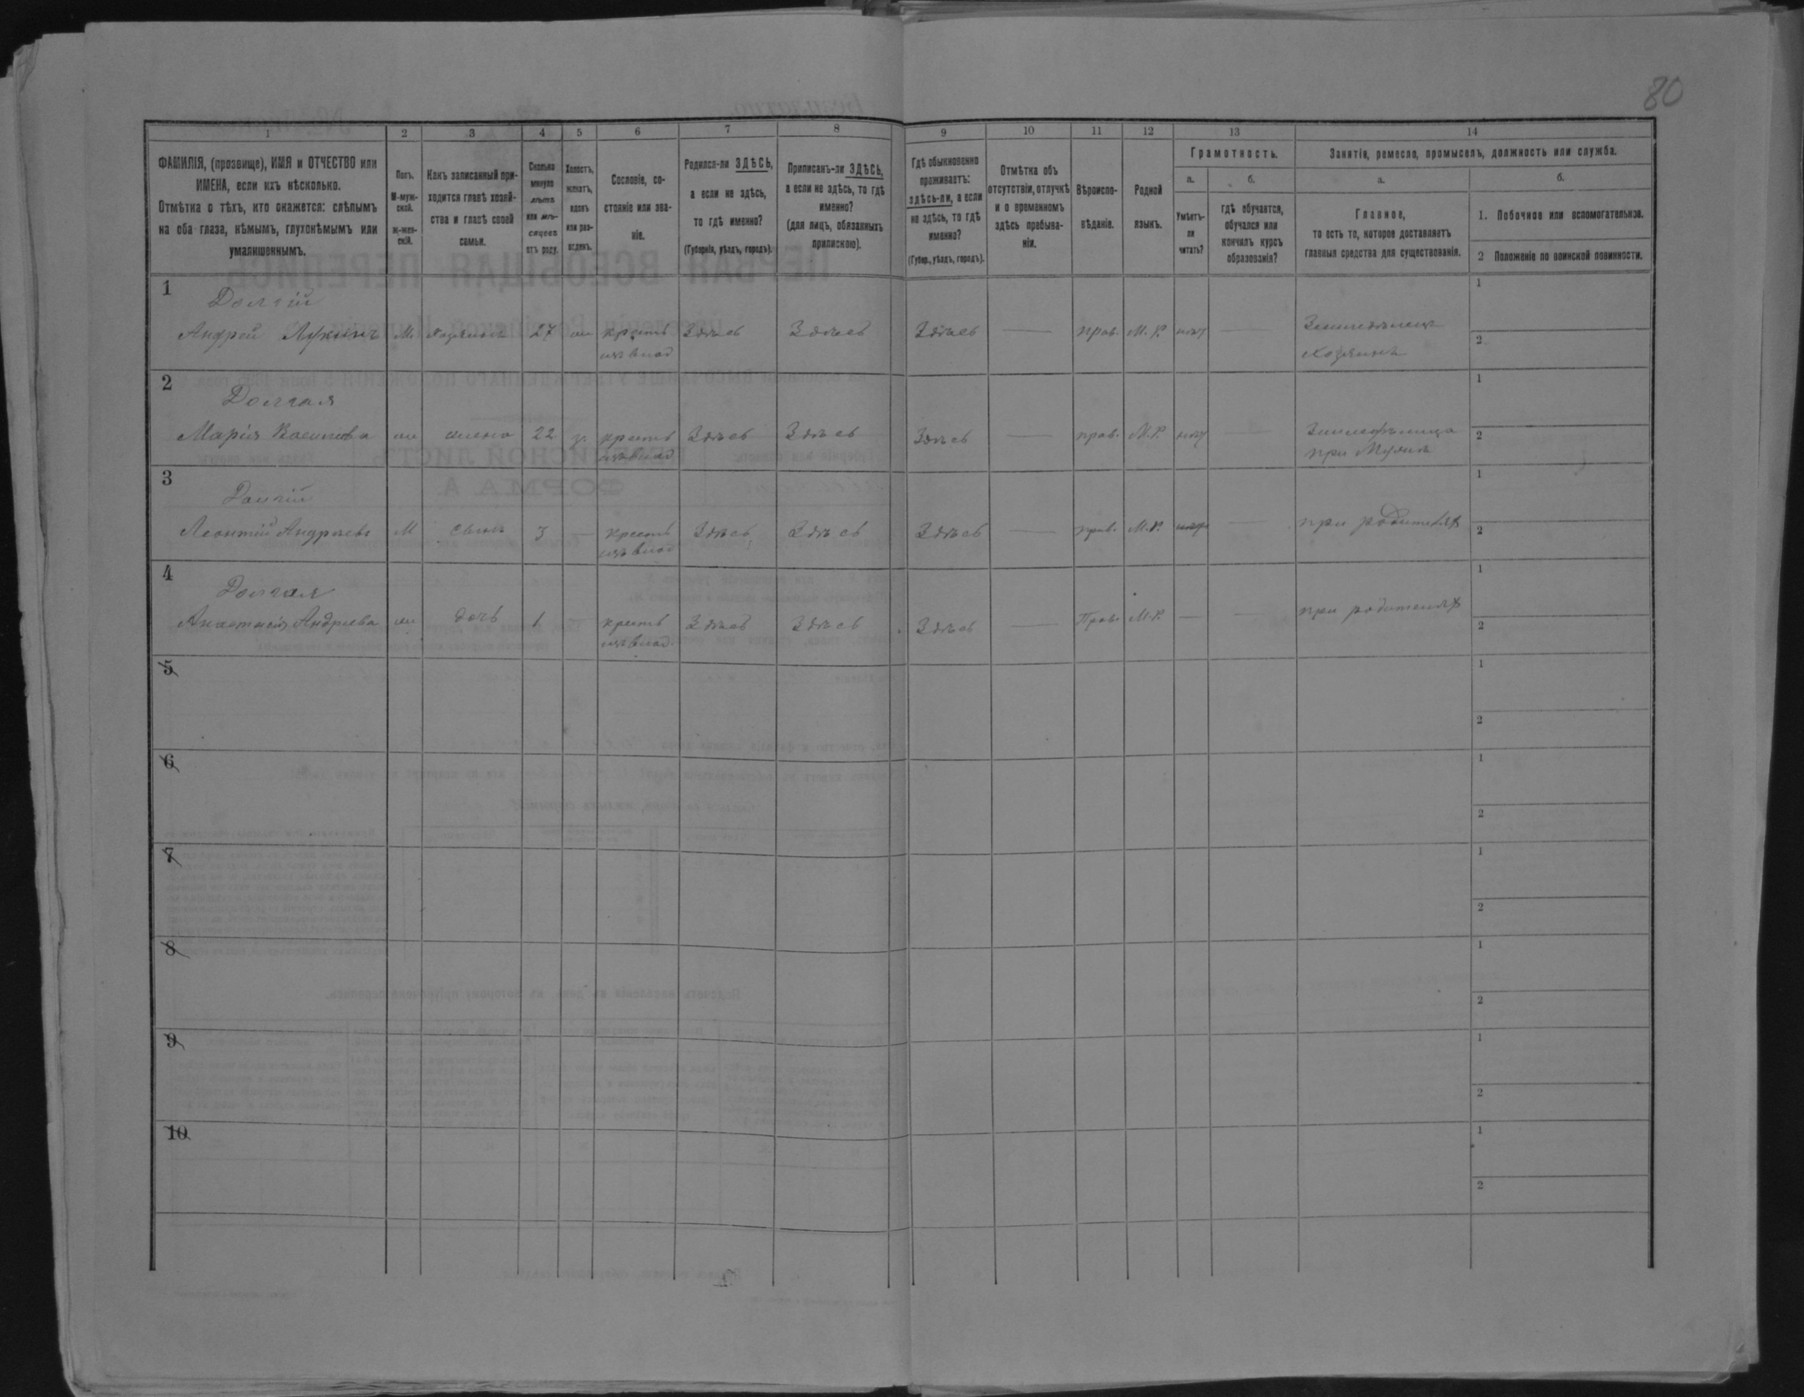 80
1 2 3 4 5 6 7 8 9 10 11 12 13 14
ФАМИЛІЯ, (прозвище), ИМЯ и ОТЧЕСТВО или
ИМЕНА, если ихъ нѣсколько.
Отмѣтка о тѣхъ, кто окажется: слѣпымъ
на оба глаза, нѣмымъ, глухонѣмымъ или
умалишеннымъ.
Полъ.
М-муж-
ской.
ж-жен-
скій.
Какъ записанный при-
ходится главѣ хозяй-
ства и главѣ своей
семьи.
Сколько
минуло
лѣтъ
или мѣ-
сяцевъ
отъ роду.
Холостъ,
женатъ,
вдовъ
или раз-
веденъ.
Сословіе, со-
стояніе или зва-
ніе.
Родился-ли ЗДѢСЬ,
а если не здѣсь,
то гдѣ именно?
(Губернія, уѣздъ, городъ).
Приписанъ-ли ЗДѢСЬ,
а если не здѣсь, то гдѣ
именно?
(для лицъ, обязанныхъ
припискою).
Гдѣ обыкновенно
проживаетъ:
здѣсь-ли, а если
не здѣсь, то гдѣ
именно?
(Губер., уѣздъ, городъ).
Отмѣтка объ
отсутствіи, отлучкѣ
и о временномъ
здѣсь пребыва-
ніи.
Вѣроиспо-
вѣданіе.
Родной
языкъ.
Грамотность.
а.
Умѣетъ-
ли
читать?
б.
гдѣ обучается,
обучался или
кончилъ курсъ
образованія?
Занятіе, ремесло, промыселъ, должность или служба.
а.
Главное,
то есть то, которое доставляетъ
главныя средства для существованія.
б.
1. Побочное или вспомогательное.
2 Положеніе по воинской повинности.
1 Долгій
Андрей Лукинъ М. хозяинъ 27 ж крестъ Здѣсь Здѣсь Здѣсь — прав. М.Р. нѣт — Земледѣлецъ
изъ влад хозяинъ
1
2
2 Долгая
Марія ж жена 22 з. крестъ Здѣсь Здѣсь Здѣсь — прав. М.Р. нѣт —
изъ влад при Мужѣ
1
2
3 Долгій
Леонтій Андреевъ М сынъ 3 — крестъ Здѣсь Здѣсь Здѣсь — прав. М.Р. — при родителях
изъ влад
1
2
4 Долгая
Анастасія Андреева ж дочь 1 крестъ Здѣсь Здѣсь Здѣсь — Прав. М.Р. — — при родителях
изъ влад.
1
2
5
1
2
6
1
2
7
1
2
8
1
2
9
1
2
10
1
2